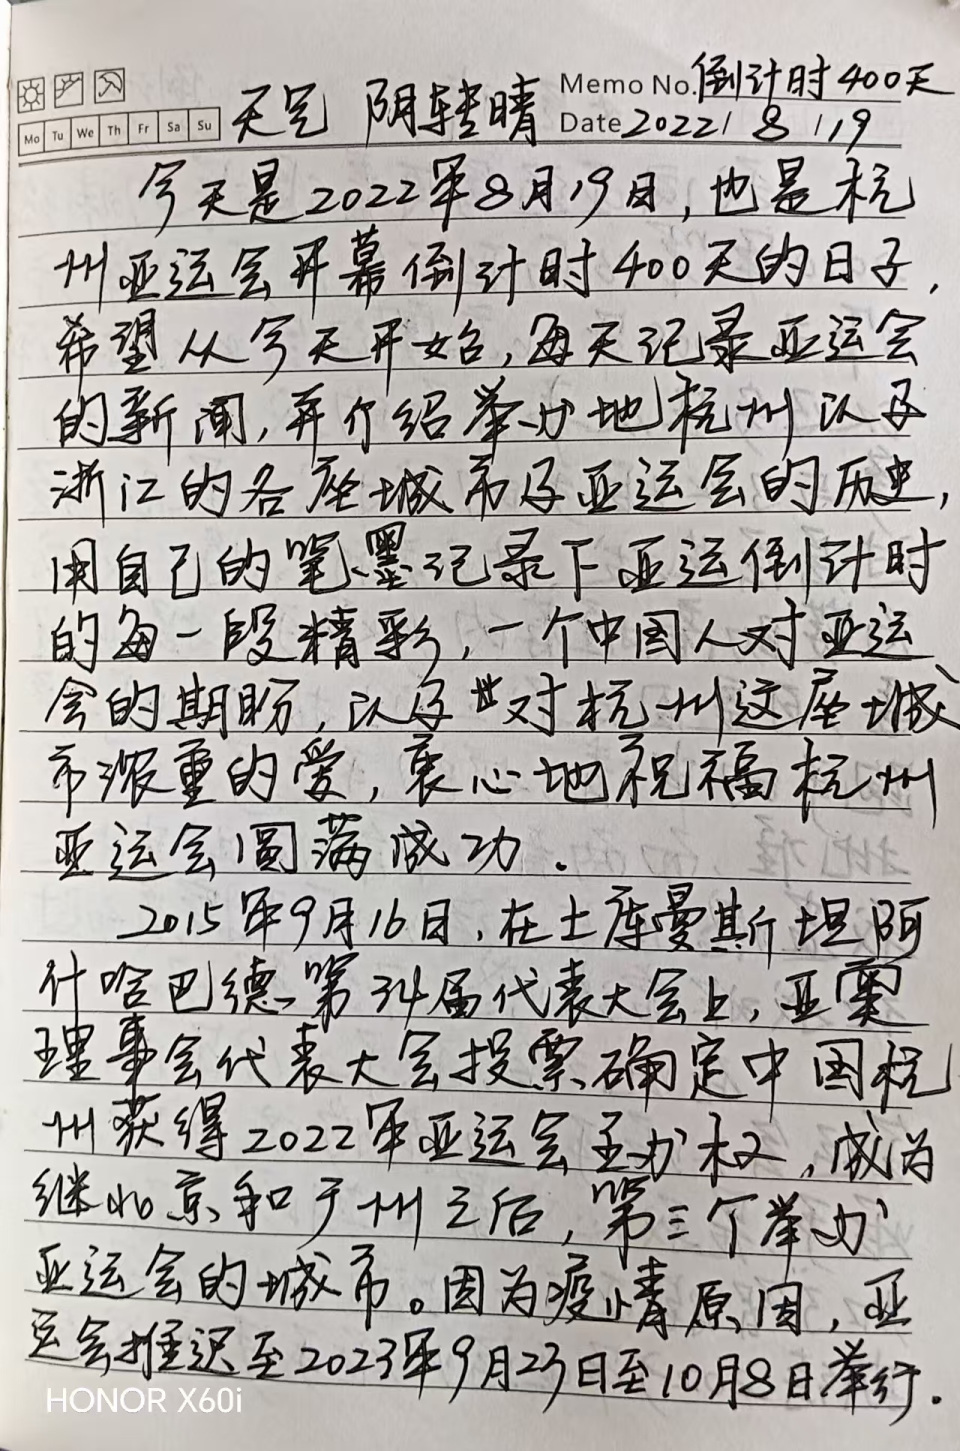 Memo No. 倒计时400天
Mo Tu We Th Fr Sa Su 天气 阴转晴 Date 2022/8/19
今天是2022年8月19日,也是杭
州亚运会开幕倒计时400天的日子,
希望从今天开始,每天记录亚运会
的新闻,并介绍举办地杭州以及
浙江的各座城市及亚运会的历史,
用自己的笔墨记录下亚运倒计时
的每一段精彩,一个中国人对亚运
会的期盼,以及对杭州这座城
市浓重的爱,衷心地祝福杭州
亚运会圆满成功.
2015年9月16日,在土库曼斯坦阿
什哈巴德第34届代表大会上,亚奥
理事会代表大会投票确定中国杭
州获得2022年亚运会主办权,成为
继北京和广州之后,第三个举办
亚运会的城市。因为疫情原因,亚
运会推迟至2023年9月23日至10月8日举行.
HONOR X60i